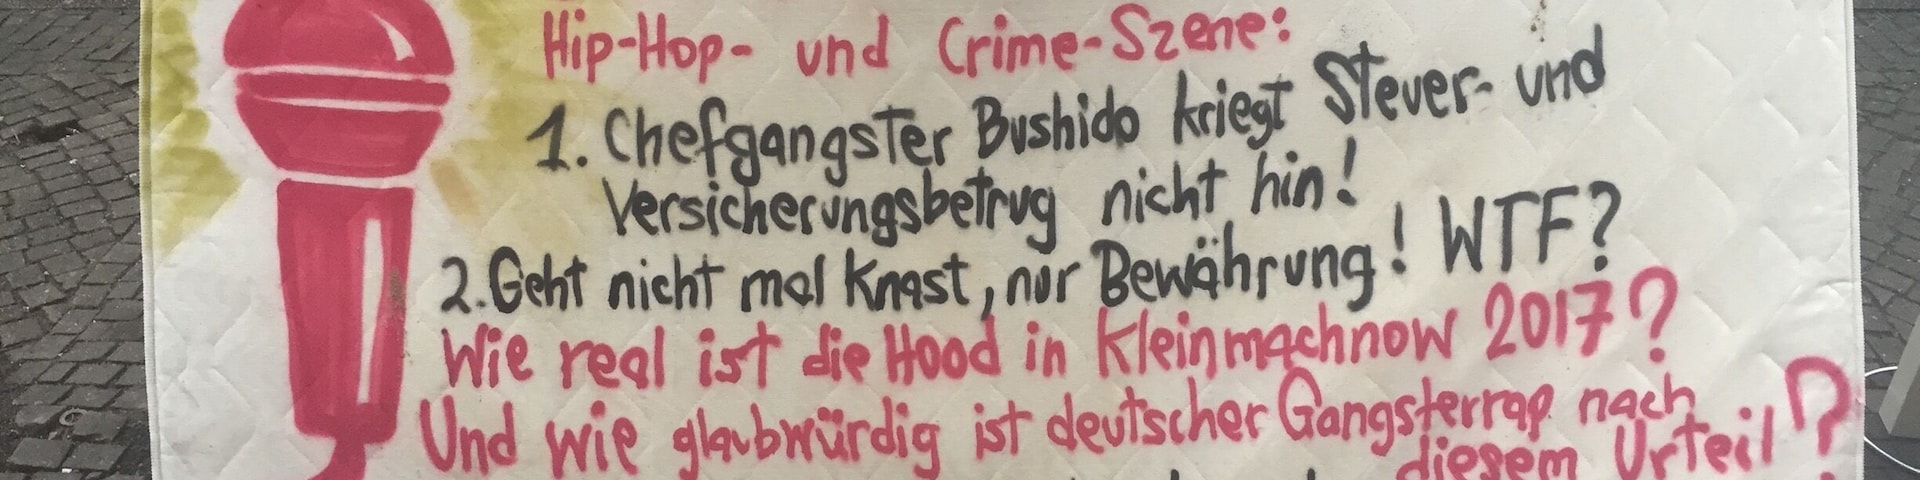 Hip-Hop- und Crime-Szene:
1. Chefgangster Bushido kriegt Steuer- und
Versicherungsbetrug nicht hin!
2. Geht nicht mal Knast, nur Bewährung! WTF?
Wie real ist die Hood in Kleinmachnow 2017?
Und wie glaubwürdig ist deutscher Gangsterrap nach
diesem Urteil?